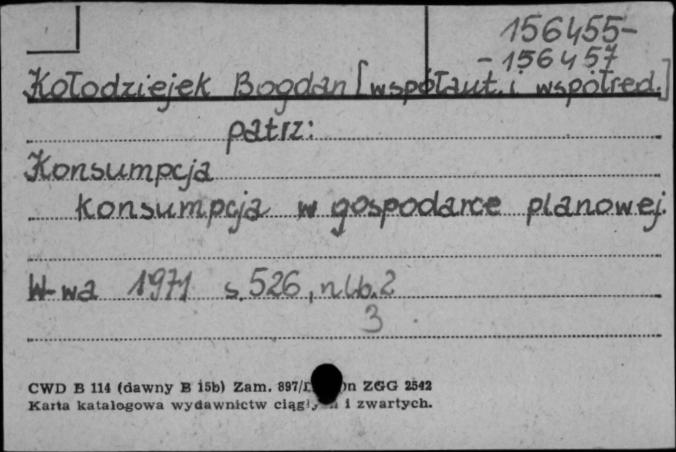 156455-
-156457
Kołodziejek Bogdan [współaut. i współred.]
patrz:
Konsumpcja
konsumpcja w gospodarce planowej.
W-wa 1971 s. 526, nlb. 2
3
CWD B 114 (dawny B 15b) Zam. 897/ ZGG 2542
Karta katalogowa wydawnictw i zwartych.